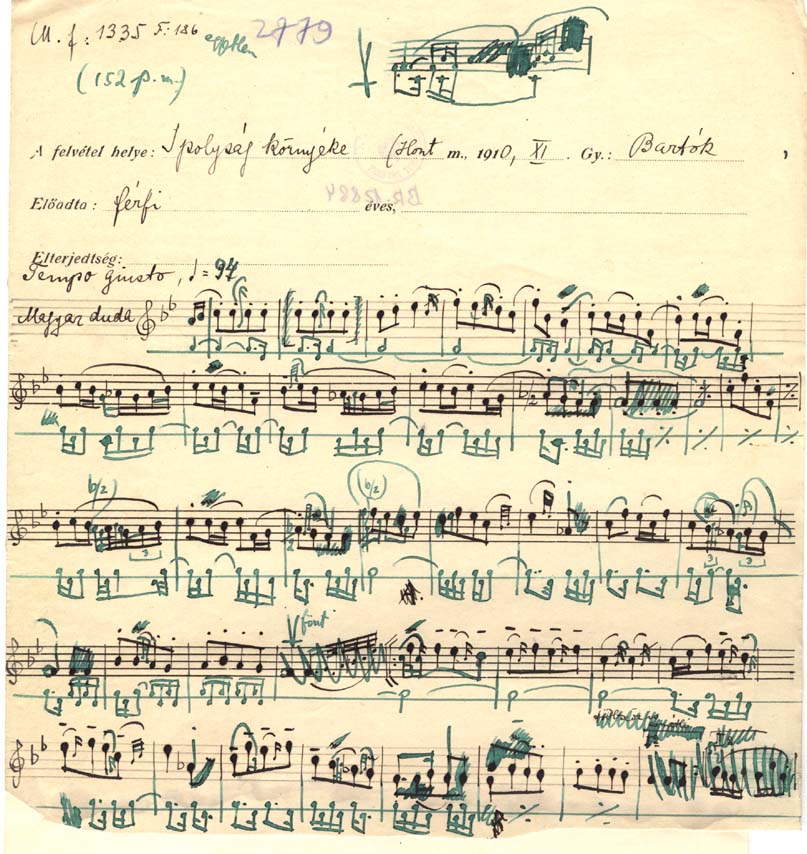 M. f: 1335 F: 186 2779
(152 p. m)
A felvétel helye: Ipolyság környéke (Hont m., 1910, XI. Gy.: Bartók,
BR 12884
Előadta: férfi éves,
Elterjedtség:
Tempo giusto, ♩=94
Magyar duda
b/2
b/2) (b/2)
3 3 3
fönt